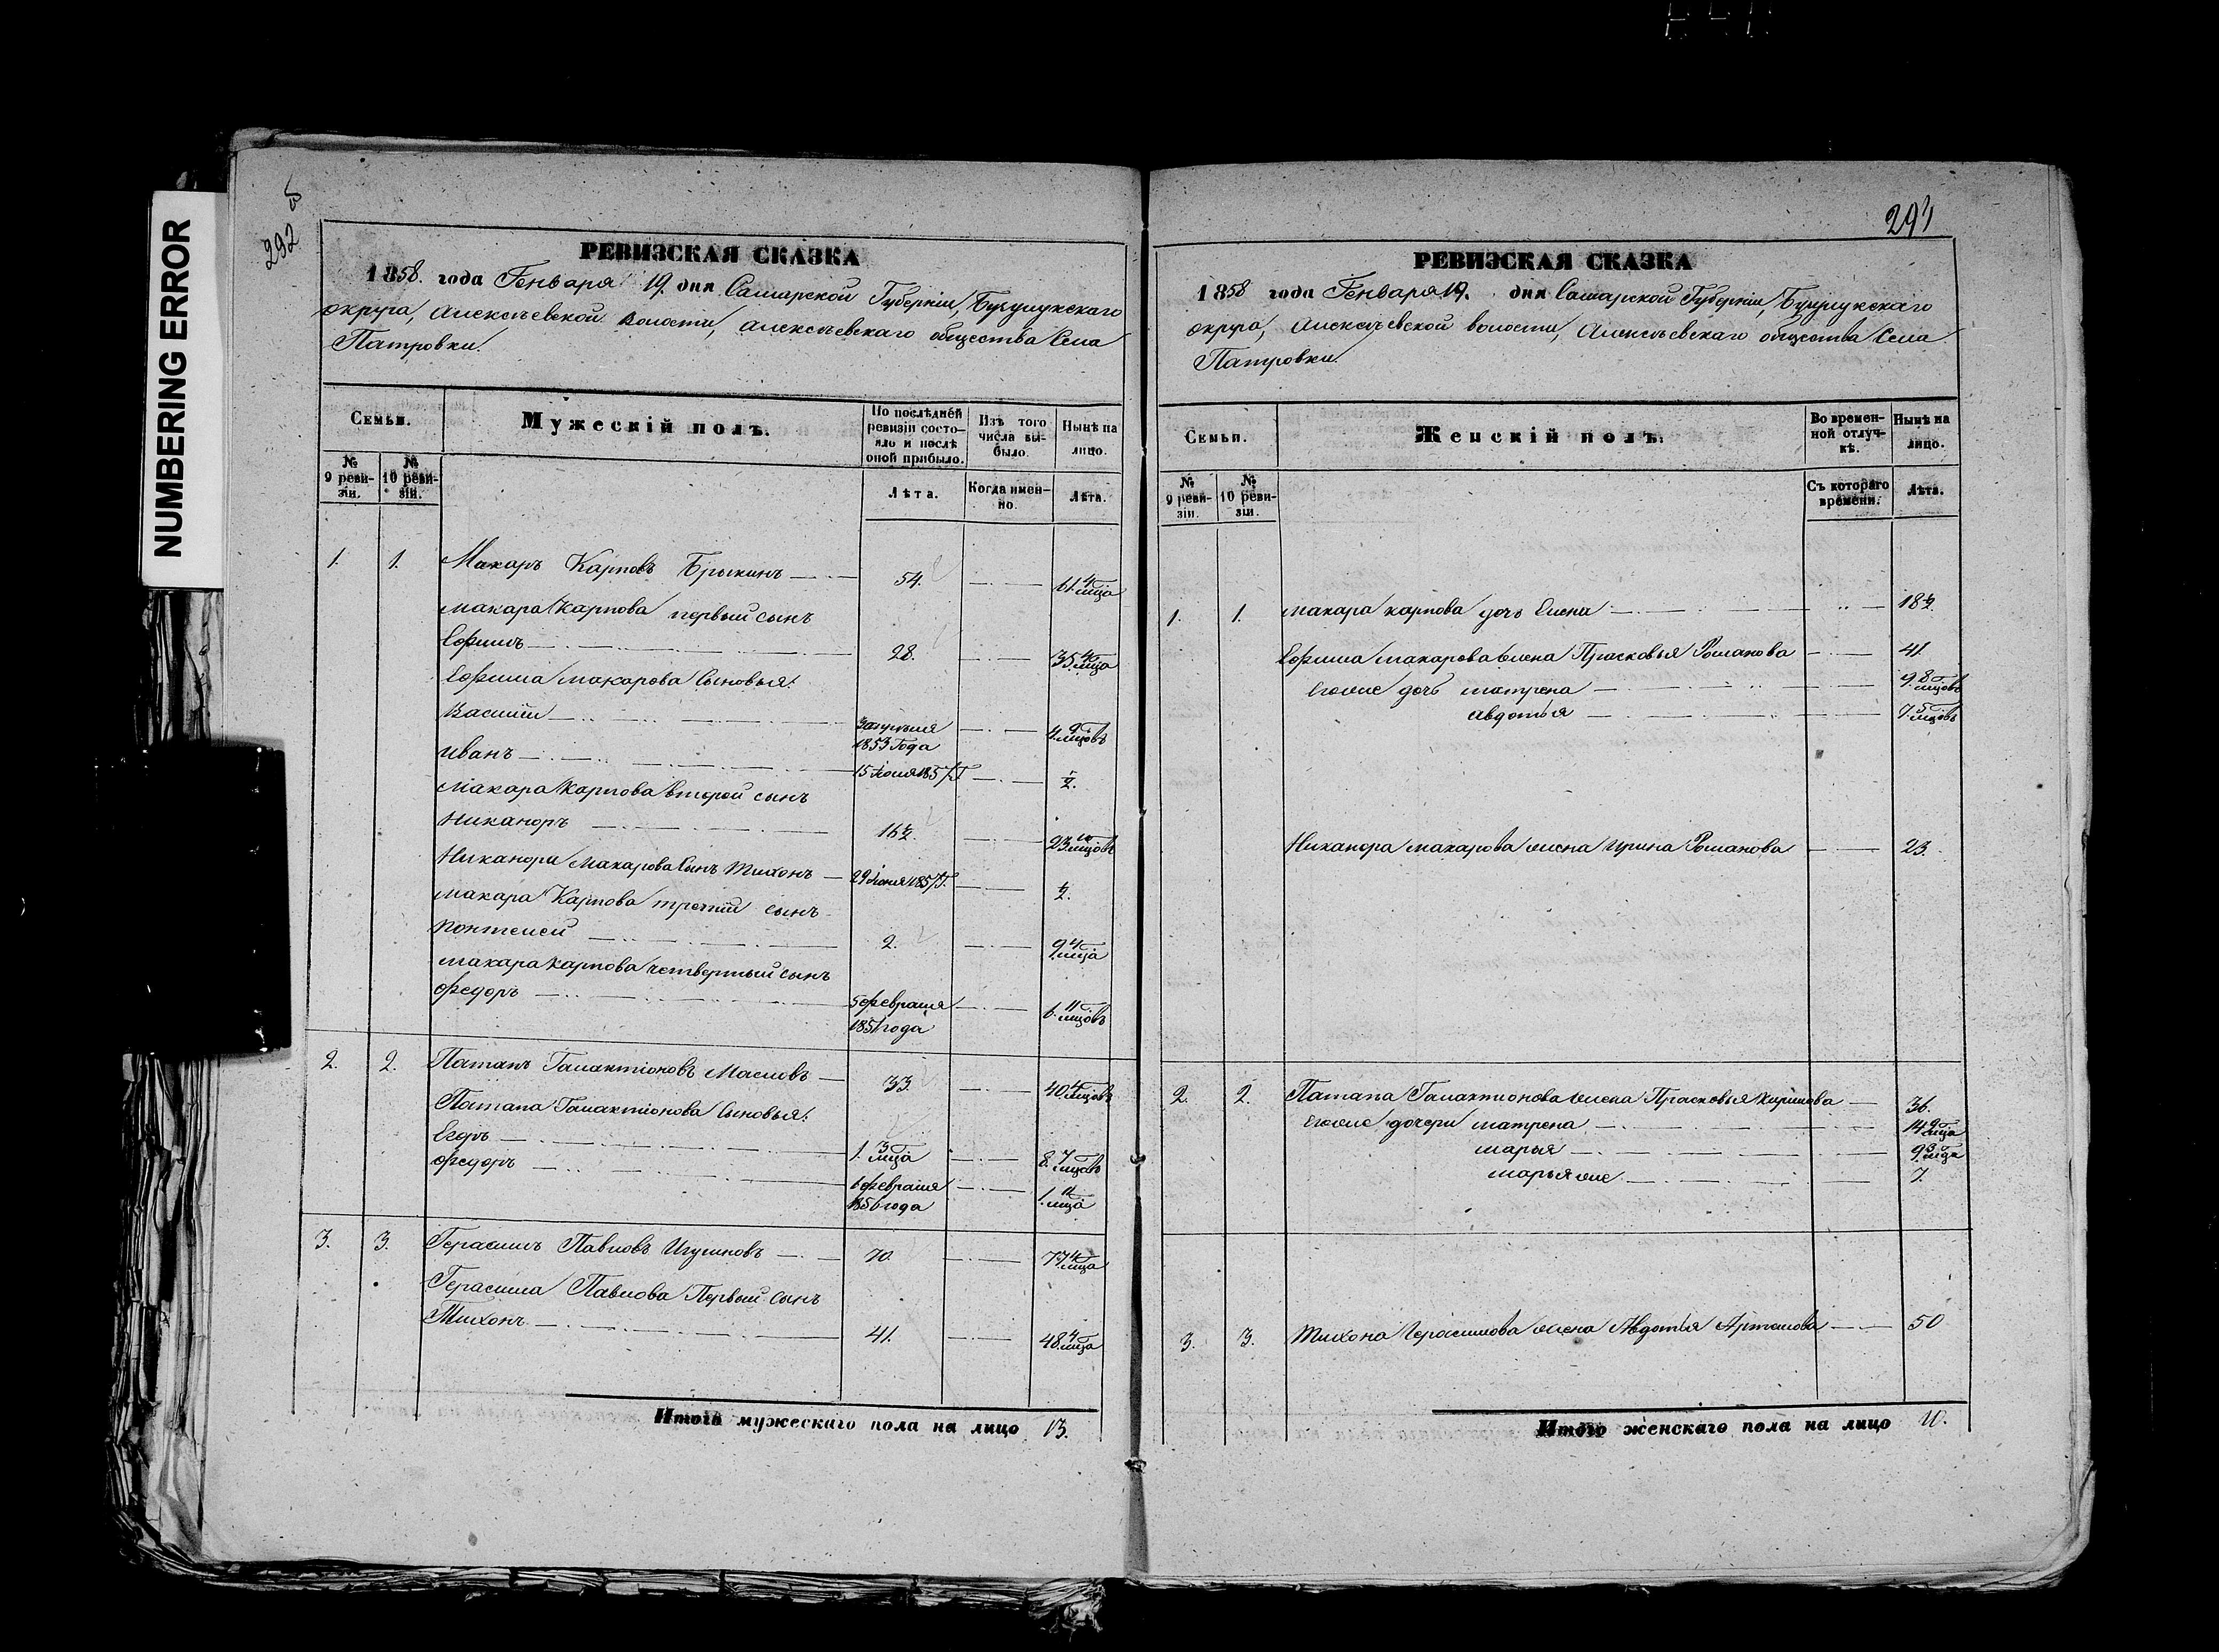 NUMBERING ERROR
292
РЕВИЗСКАЯ СКАЗКА
1858. года Генваря 19. дня Самарской Губернiи, Бузулукскаго
округа, Алексѣевской волости, Алексѣевскаго общества Села
Патровки.
Семьи.
Мужескiй полъ.
По послѣдней ревизiи состояло и послѣ оной прибыло.
Изъ того числа выбыло.
Нынѣ на лицо.
№ 9 ревизiи.
№ 10 ревизiи.
Лѣта.
Когда именно.
Лѣта.
1. 1. Макаръ Карповъ Брыкинъ 54. 61. 4 мца
Макара Карпова первый сынъ
Ефимъ 28. 35. 4 мца
Ефима Макарова Сыновья:
Василiй 1853 Года 4. 9 мцовъ
Иванъ 15 Iюня 1857 Г ½.
Макара Карпова второй сынъ
Никаноръ 16½. 23. 10 мцовъ
Никанора Макарова Сынъ Тихонъ 29 Iюня 1857 Г. ½.
Макара Карпова третiй сынъ
Понтелей 2. 9. 4 мца
Макара Карпова четвертый сынъ
Федоръ 5 февраля 1851 года 6. 11 мцовъ
2. 2. Патапъ Галактiоновъ Масловъ 33. 40. 4 мцовъ
Патапа Галактiонова Сыновья:
Егоръ 1. 3 мца 8. 7 мцовъ
Федоръ 6 февраля 1856 года 1. 11 мца
3. 3. Герасимъ Павловъ Игумновъ 70. 77. 4 мца
Герасима Павлова Первый сынъ
Тихонъ 41. 48. 4 мца
Итого мужескаго пола на лицо 13.
293
РЕВИЗСКАЯ СКАЗКА
1858 года Генваря 19. дня Самарской Губернiи, Бузулукскаго
округа, Алексѣевской волости, Алексѣевскаго общества Села
Патровки.
Семьи.
Женскiй полъ.
Во временной отлучкѣ.
Нынѣ на лицо.
№ 9 ревизiи.
№ 10 ревизiи.
Съ котораго времени.
Лѣта.
1. 1. Макара Карпова дочь Елена 18½.
Ефима Макарова жена Прасковья Романова 41.
Егоже дочь Матрена 9. 8 мцовъ
Авдотья 7. 5 мцовъ
Никанора Макарова жена Ирина Романова 23.
2. 2. Патапа Галактионова жена Прасковья Кирилова 36.
Егоже дочери Матрена 14. мца
Марья 9. мца
Марья же 7.
3. 3. Тихона Герасимова жена Авдотья Артемова 50
Итого женскаго пола на лицо 10.